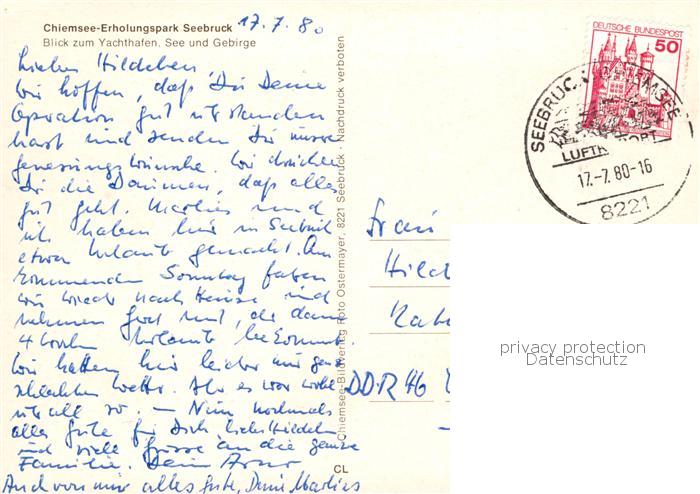 Chiemsee-Erholungspark Seebruck
17.7.80
Blick zum Yachthafen, See und Gebirge
Liebes Hildchen
wir hoffen, daß Du Deine
Operation gut überstanden
hast und senden Dir unsere
Genesungswünsche. Wir drücken
Dir die Daumen, daß alles
gut geht. Marlies und
ich haben hier in Seebruck
etwas Urlaub gemacht. Am
kommenden Sonntag fahren
wir wieder nach Hause und
nehmen mit, die dann
4 Wochen Urlaub bekommt.
Wir hatten hier leider nur ganz
schlechtes Wetter. Aber es war wohl
überall so. – Nun nochmals
alles Gute für Dich, liebes Hildchen
und viele Grüsse an die ganze
Familie. Dein Arno
Auch von mir alles Gute, Deine Marlies
Chiemsee-Bildverlag Foto Ostermayer, 8221 Seebruck · Nachdruck verboten
CL
DEUTSCHE BUNDESPOST
50
SEEBRUCK CHIEMSEE
LUFTKURORT
17.-7.80-16
8221
Frau
Hild
DDR 46
privacy protection
Datenschutz